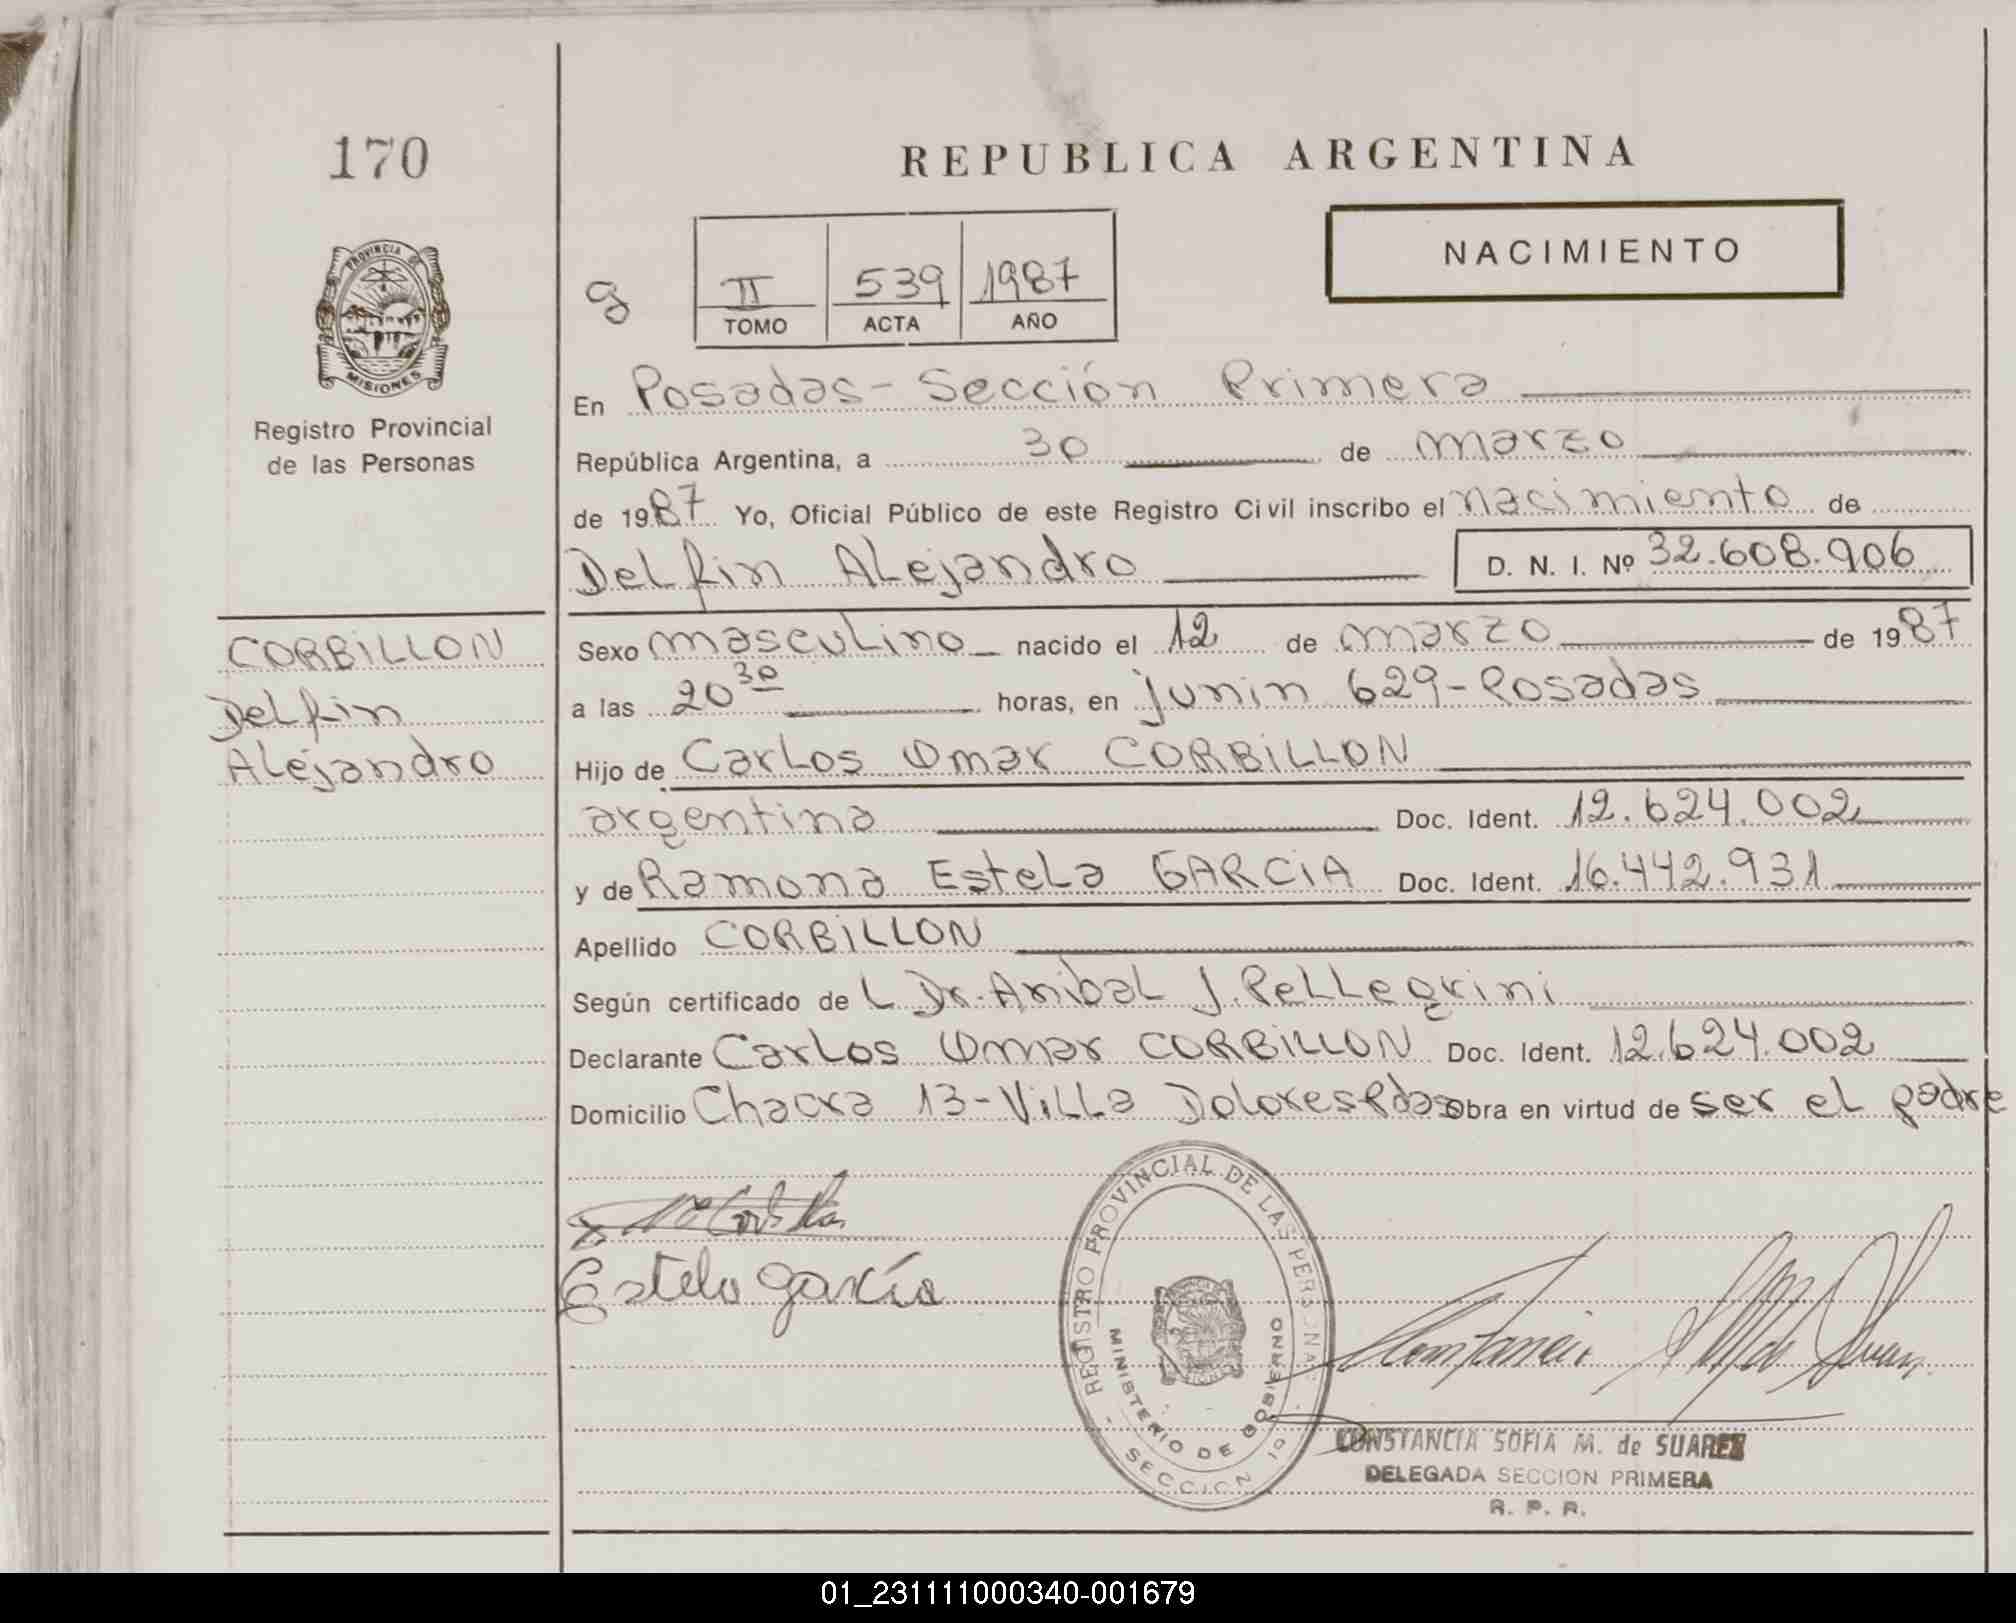 170
REPUBLICA ARGENTINA
NACIMIENTO
g
II 539 1987
TOMO ACTA AÑO
PROVINCIA DE
MISIONES
Registro Provincial
de las Personas
En Posadas - Sección Primera
República Argentina, a 30 de marzo
de 1987 Yo, Oficial Público de este Registro Civil inscribo el nacimiento de
Delfin Alejandro D. N. I. Nº 32.608.906
CORBILLON
Delfin
Alejandro
Sexo masculino nacido el 12 de marzo de 1987
a las 20 30 horas, en junin 629 - Posadas
Hijo de Carlos Omar CORBILLON
argentina Doc. Ident. 12.624.002
y de Ramona Estela GARCIA Doc. Ident. 16.442.931
Apellido CORBILLON
Según certificado de L Dr. Anibal J. Pellegrini
Declarante Carlos Omar CORBILLON Doc. Ident. 12.624.002
Domicilio Chacra 13 - Villa Dolores Pdas Obra en virtud de ser el padre
Estela García
REGISTRO PROVINCIAL DE LAS PERSONAS
MINISTERIO DE GOBIERNO
SECCION 1º
CONSTANCIA SOFIA M. de SUAREZ
DELEGADA SECCION PRIMERA
R. P. R.
01_231111000340-001679